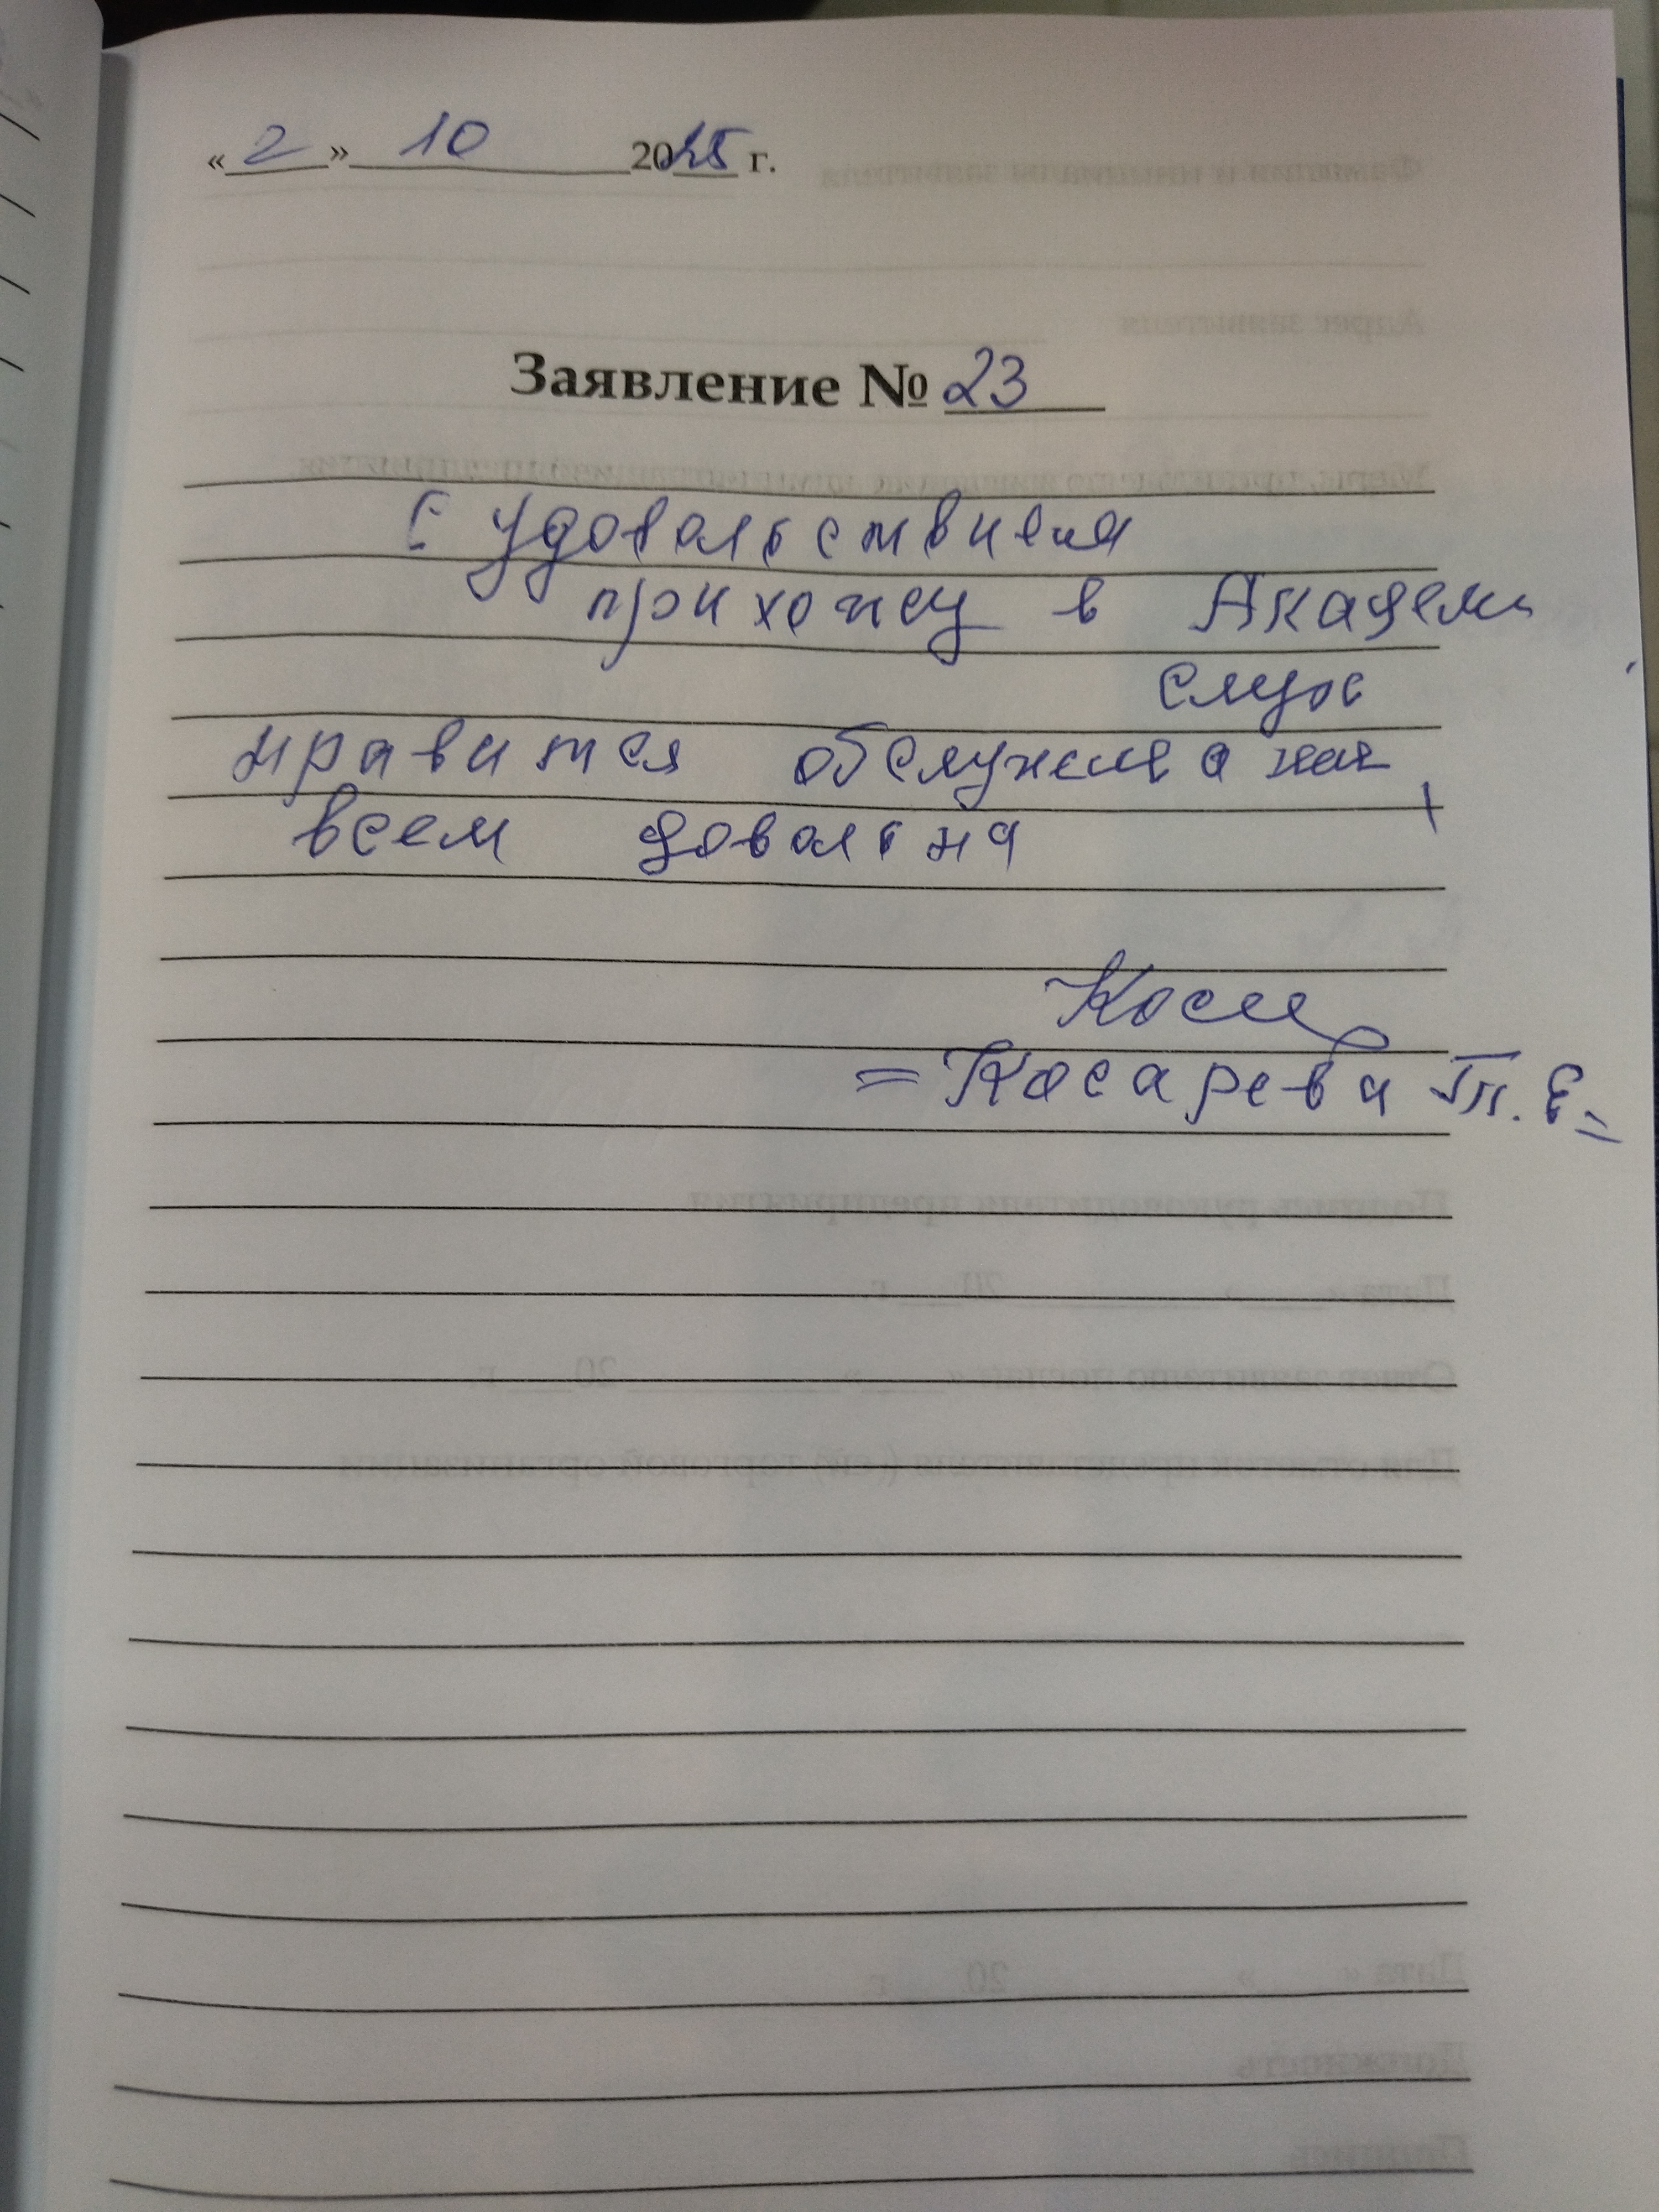 «2» 10 2025 г.
Заявление № 23
С удовольствием
прихожу в Академ
слух
нравится обслужива ние
всем довольна
= Косарева Т. Е =